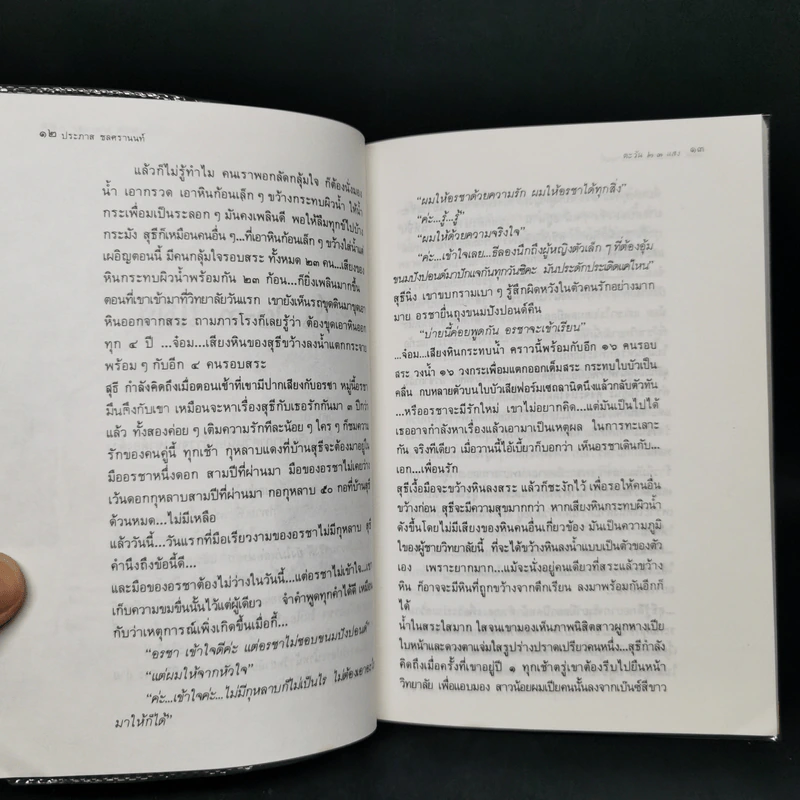 ๑๒ ประภาส ชลศรานนท์
แล้วก็ไม่รู้ทำไม คนเราพอกลัดกลุ้มใจ ก็ต้องนั่งมอง
น้ำ เอากรวด เอาหินก้อนเล็ก ๆ ขว้างกระทบผิวน้ำ ให้น้ำ
กระเพื่อมเป็นระลอก ๆ มันคงเพลินดี พอให้ลืมทุกข์ไปบ้าง
กระมัง สุธีก็เหมือนคนอื่น ๆ...ที่เอาหินก้อนเล็ก ๆ ขว้างใส่น้ำแต่
เผอิญตอนนี้ มีคนกลุ้มใจรอบสระ ทั้งหมด ๒๓ คน...เสียงของ
หินกระทบผิวน้ำพร้อมกัน ๒๓ ก้อน...ก็ยิ่งเพลินมากขึ้น
ตอนที่เขาเข้ามาที่วิทยาลัยวันแรก เขายังเห็นรถขุดดินมาขุดเอา
หินออกจากสระ ถามภารโรงก็เลยรู้ว่า ต้องขุดเอาหินออก
ทุก ๔ ปี ...จ๋อม...เสียงหินของสุธีขว้างลงน้ำแตกกระจาย
พร้อม ๆ กับอีก ๔ คนรอบสระ
สุธี กำลังคิดถึงเมื่อตอนเช้าที่เขามีปากเสียงกับอรชา หมู่นี้อรชา
มึนตึงกับเขา เหมือนจะหาเรื่องสุธีกับเธอรักกันมา ๓ ปีกว่า
แล้ว ทั้งสองค่อย ๆ เติมความรักทีละน้อย ๆ ใคร ๆ ก็ชมความ
รักของคนคู่นี้ ทุกเช้า กุหลาบแดงที่บ้านสุธีจะต้องมาอยู่ใน
มืออรชาหนึ่งดอก สามปีที่ผ่านมา มือของอรชาไม่เคยว่าง
เว้นดอกกุหลาบสามปีที่ผ่านมา กอกุหลาบ ๕๐ กอที่บ้านสุธี
ด้วนหมด...ไม่มีเหลือ
แล้ววันนี้...วันแรกที่มือเรียวงามของอรชาไม่มีกุหลาบ สุธี
คำนึงถึงข้อนี้ดี...
และมือของอรชาต้องไม่ว่างในวันนี้...แต่อรชาไม่เข้าใจ...เขา
เก็บความขมขื่นนั้นไว้แต่ผู้เดียว จำคำพูดทุกคำได้ดี เหมือน
กับว่าเหตุการณ์เพิ่งเกิดขึ้นเมื่อกี้...
“อรชา เข้าใจดีค่ะ แต่อรชาไม่ชอบขนมปังปอนด์”
“แต่ผมให้จากหัวใจ”
“ค่ะ...เข้าใจค่ะ...ไม่มีกุหลาบก็ไม่เป็นไร ไม่ต้องเอาอะไร
มาให้ก็ได้”
๑๓
“ผมให้อรชาด้วยความรัก ผมให้อรชาได้ทุกสิ่ง”
“ค่ะ...รู้...รู้”
“ผมให้ด้วยความจริงใจ”
“ค่ะ...เข้าใจเลย...ธีลองนึกถึงผู้หญิงตัวเล็ก ๆ ที่ต้องอุ้ม
ขนมปังปอนด์มาปักแจกันทุกวันซิคะ มันประดักประเดิดแค่ไหน”
สุธีนิ่ง เขาขบกรามเบา ๆ รู้สึกผิดหวังในตัวคนรักอย่างมาก
มาย อรชายื่นถุงขนมปังปอนด์คืน
“บ่ายนี้ค่อยพูดกัน อรชาจะเข้าเรียน”
...จ๋อม...เสียงหินกระทบน้ำ คราวนี้พร้อมกับอีก ๑๖ คนรอบ
สระ วงน้ำ ๑๖ วงกระเพื่อมแตกออกเต็มสระ กระทบใบบัวเป็น
คลื่น กบหลายตัวบนใบบัวเสียฟอร์มเซถลานิดนึงแล้วกลับตัวทัน
...หรืออรชาจะมีรักใหม่ เขาไม่อยากคิด...แต่มันเป็นไปได้
เธออาจกำลังหาเรื่องแล้วเอามาเป็นเหตุผล ในการทะเลาะ
กัน จริงทีเดียว เมื่อวานนี้ไอ้เบี้ยวก็บอกว่า เห็นอรชาเดินกับ...
เอก...เพื่อนรัก
สุธีเงื้อมือจะขว้างหินลงสระ แล้วก็ชะงักไว้ เพื่อรอให้คนอื่น
ขว้างก่อน สุธีจะมีความสุขมากกว่า หากเสียงหินกระทบผิวน้ำ
ดังขึ้นโดยไม่มีเสียงของหินคนอื่นเกี่ยวข้อง มันเป็นความภูมิ
ใจของผู้ชายวิทยาลัยนี้ ที่จะได้ขว้างหินลงน้ำแบบเป็นตัวของตัว
เอง เพราะยากมาก...แม้จะนั่งอยู่คนเดียวที่สระแล้วขว้าง
หิน ก็อาจจะมีหินที่ถูกขว้างจากตึกเรียน ลงมาพร้อมกันอีกก็
ได้
น้ำในสระใสมาก ใสจนเขามองเห็นภาพนิสิตสาวผูกหางเปีย
ใบหน้าและดวงตาแจ่มใสรูปร่างปราดเปรียวคนหนึ่ง...สุธีกำลัง
คิดถึงเมื่อครั้งที่เขาอยู่ปี ๑ ทุกเช้าตรู่เขาต้องรีบไปยืนหน้า
วิทยาลัย เพื่อแอบมอง สาวน้อยผมเปียคนนั้นลงจากเบ๊นซ์สีขาว